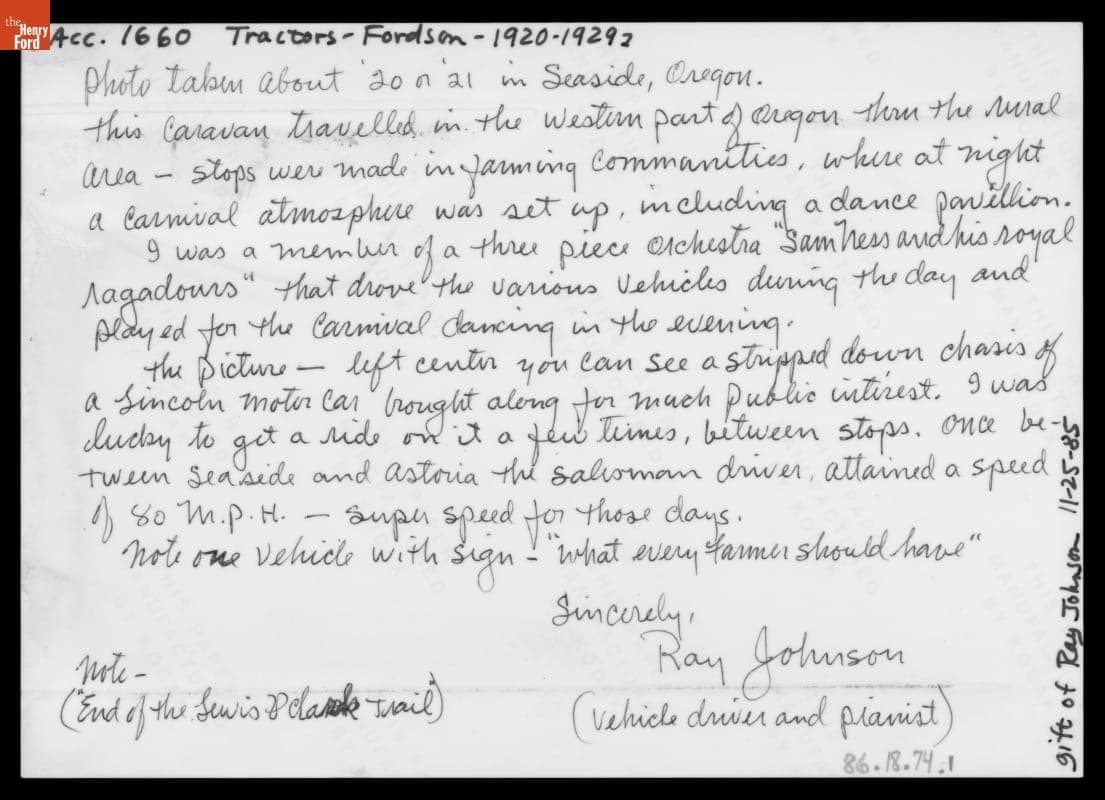 the
Henry
Ford
Acc. 1660 Tractors - Fordson - 1920-1929?
Photo taken about '20 or '21 in Seaside, Oregon.
This caravan travelled in the western part of Oregon thru the rural
area — stops were made in farming communities, where at night
a carnival atmosphere was set up, including a dance pavillion.
I was a member of a three piece orchestra "Sam Ness and his royal
ragadours" that drove the various vehicles during the day and
played for the carnival dancing in the evening.
The picture — left center you can see a stripped down chasis of
a Lincoln motor car brought along for much public interest. I was
lucky to get a ride on it a few times, between stops. Once be-
tween Seaside and Astoria the salesman driver, attained a speed
of 80 M.P.H. — super speed for those days.
Note one vehicle with sign - "What every farmer should have"
Sincerely,
Ray Johnson
(Vehicle driver and pianist)
Note -
("End of the Lewis & Clark Trail")
86.18.74.1
gift of Ray Johnson 11-25-85